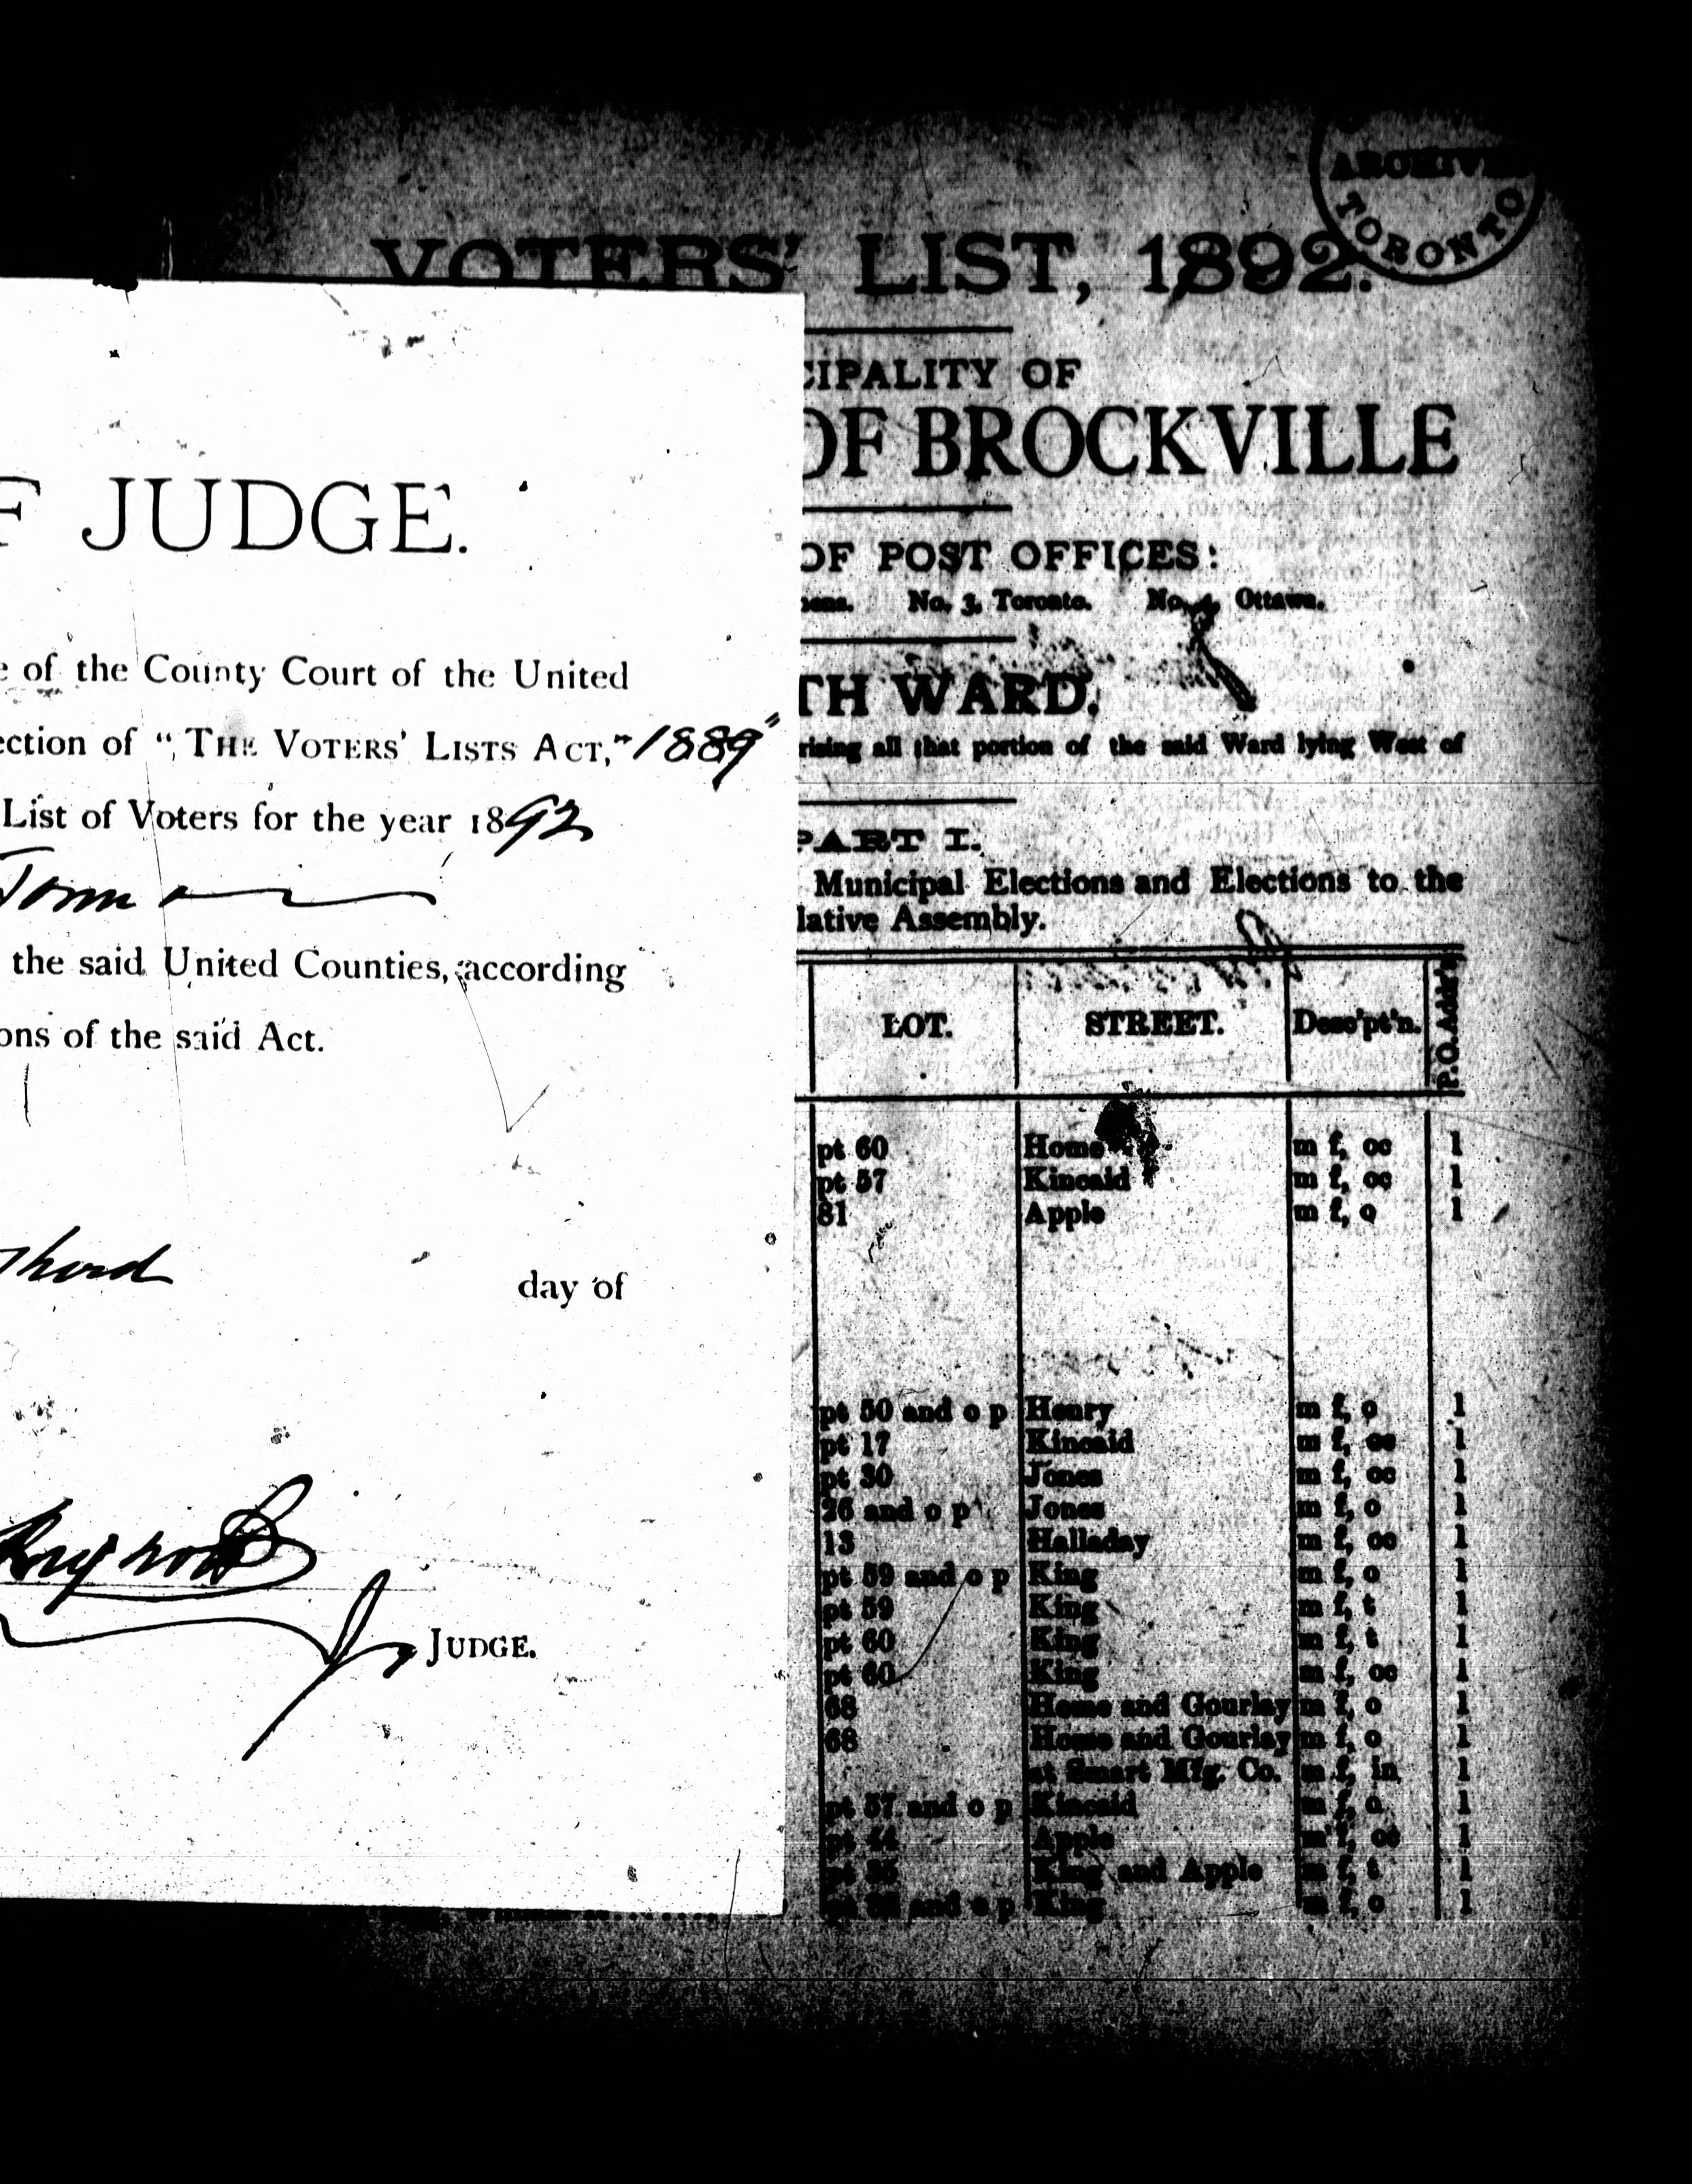 ARCHIVES
TORONTO
VOTERS' LIST, 1892.
CIPALITY OF
OF BROCKVILLE
OF POST OFFICES:
No. 3, Toronto. No. 4, Ottawa.
TH WARD.
rising all that portion of the said Ward lying West of
PART I.
Municipal Elections and Elections to the
lative Assembly.
LOT. STREET. Desc'pt'n. P.O. Addr's
pt 60 Home m f, oc 1
pt 57 Kincaid m f, oc 1
81 Apple m f, o 1
pt 50 and o p Henry m f, o 1
pt 17 Kincaid m f, oc 1
pt 30 Jones m f, oc 1
26 and o p Jones m f, o 1
13 Halladay m f, oc 1
pt 59 and o p King m f, o 1
pt 59 King m f, t 1
pt 60 King m f, t 1
pt 60 King m f, oc 1
68 Home and Gourlay m f, o 1
68 Home and Gourlay m f, o 1
at Smart Mfg. Co. m f, in 1
pt 57 and o p Kincaid m f, o 1
pt 44 Apple m f, oc 1
pt King and Apple m f, t 1
and o p King m f, o 1
F JUDGE.
e of the County Court of the United
ection of "THE VOTERS' LISTS ACT," 1889"
List of Voters for the year 1892
Town
the said United Counties, according
ons of the said Act.
day of
JUDGE.